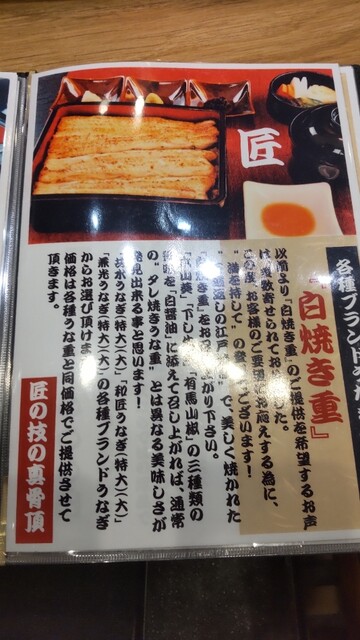 匠
各種ブランドうな
『白焼き重』
以前より『白焼き重』のご提供を希望するお声
数寄せられてお
した。
この度、お客様のご要望にお応えする為に、
"満を持して"の
ございます！
返しの江戸
で、美しく焼かれた
き重』をお召
がり下さい。
山葵」「下し
「有馬山椒」の三種類の
"白醤油"に添えて召し上がれば、通常
の"タレ焼きうな重"とは異なる美味しさが
発見出来る事と思います！
水うなぎ(特大)(大)」「和匠うなぎ(特大)(大)」
「兼光うなぎ(特大)(大)の各種ブランドうなぎ
からお選び頂けま
価格は各種うな重と同価格でご提供させて
頂きます。
匠の技の真骨頂